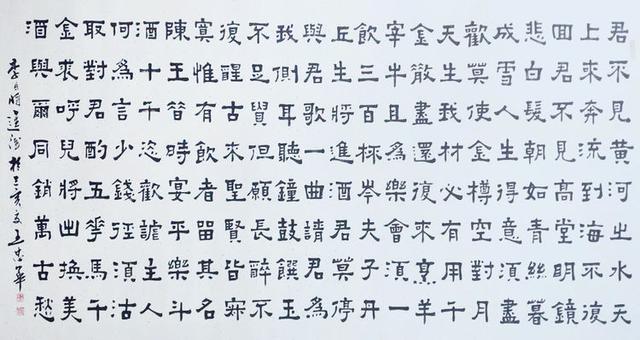 君不見黃河之水天
上來奔流到海不復
回君不見高堂明鏡
悲白髮朝如青絲暮
成雪人生得意須盡
歡莫使金樽空對月
天生我材必有用千
金散盡還復來烹羊
宰牛且為樂會須一
飲三百杯岑夫子丹
丘生將進酒君莫停
與君歌一曲請君為
我側耳聽鐘鼓饌玉
不足貴但願長醉不
復醒古來聖賢皆寂
寞惟有飲者留其名
陳王昔時宴平樂斗
酒十千恣歡謔主人
何為言少錢徑須沽
取對君酌五華馬千
金裘呼兒將出換美
酒與爾同銷萬古愁
李白 於 亥 王 華